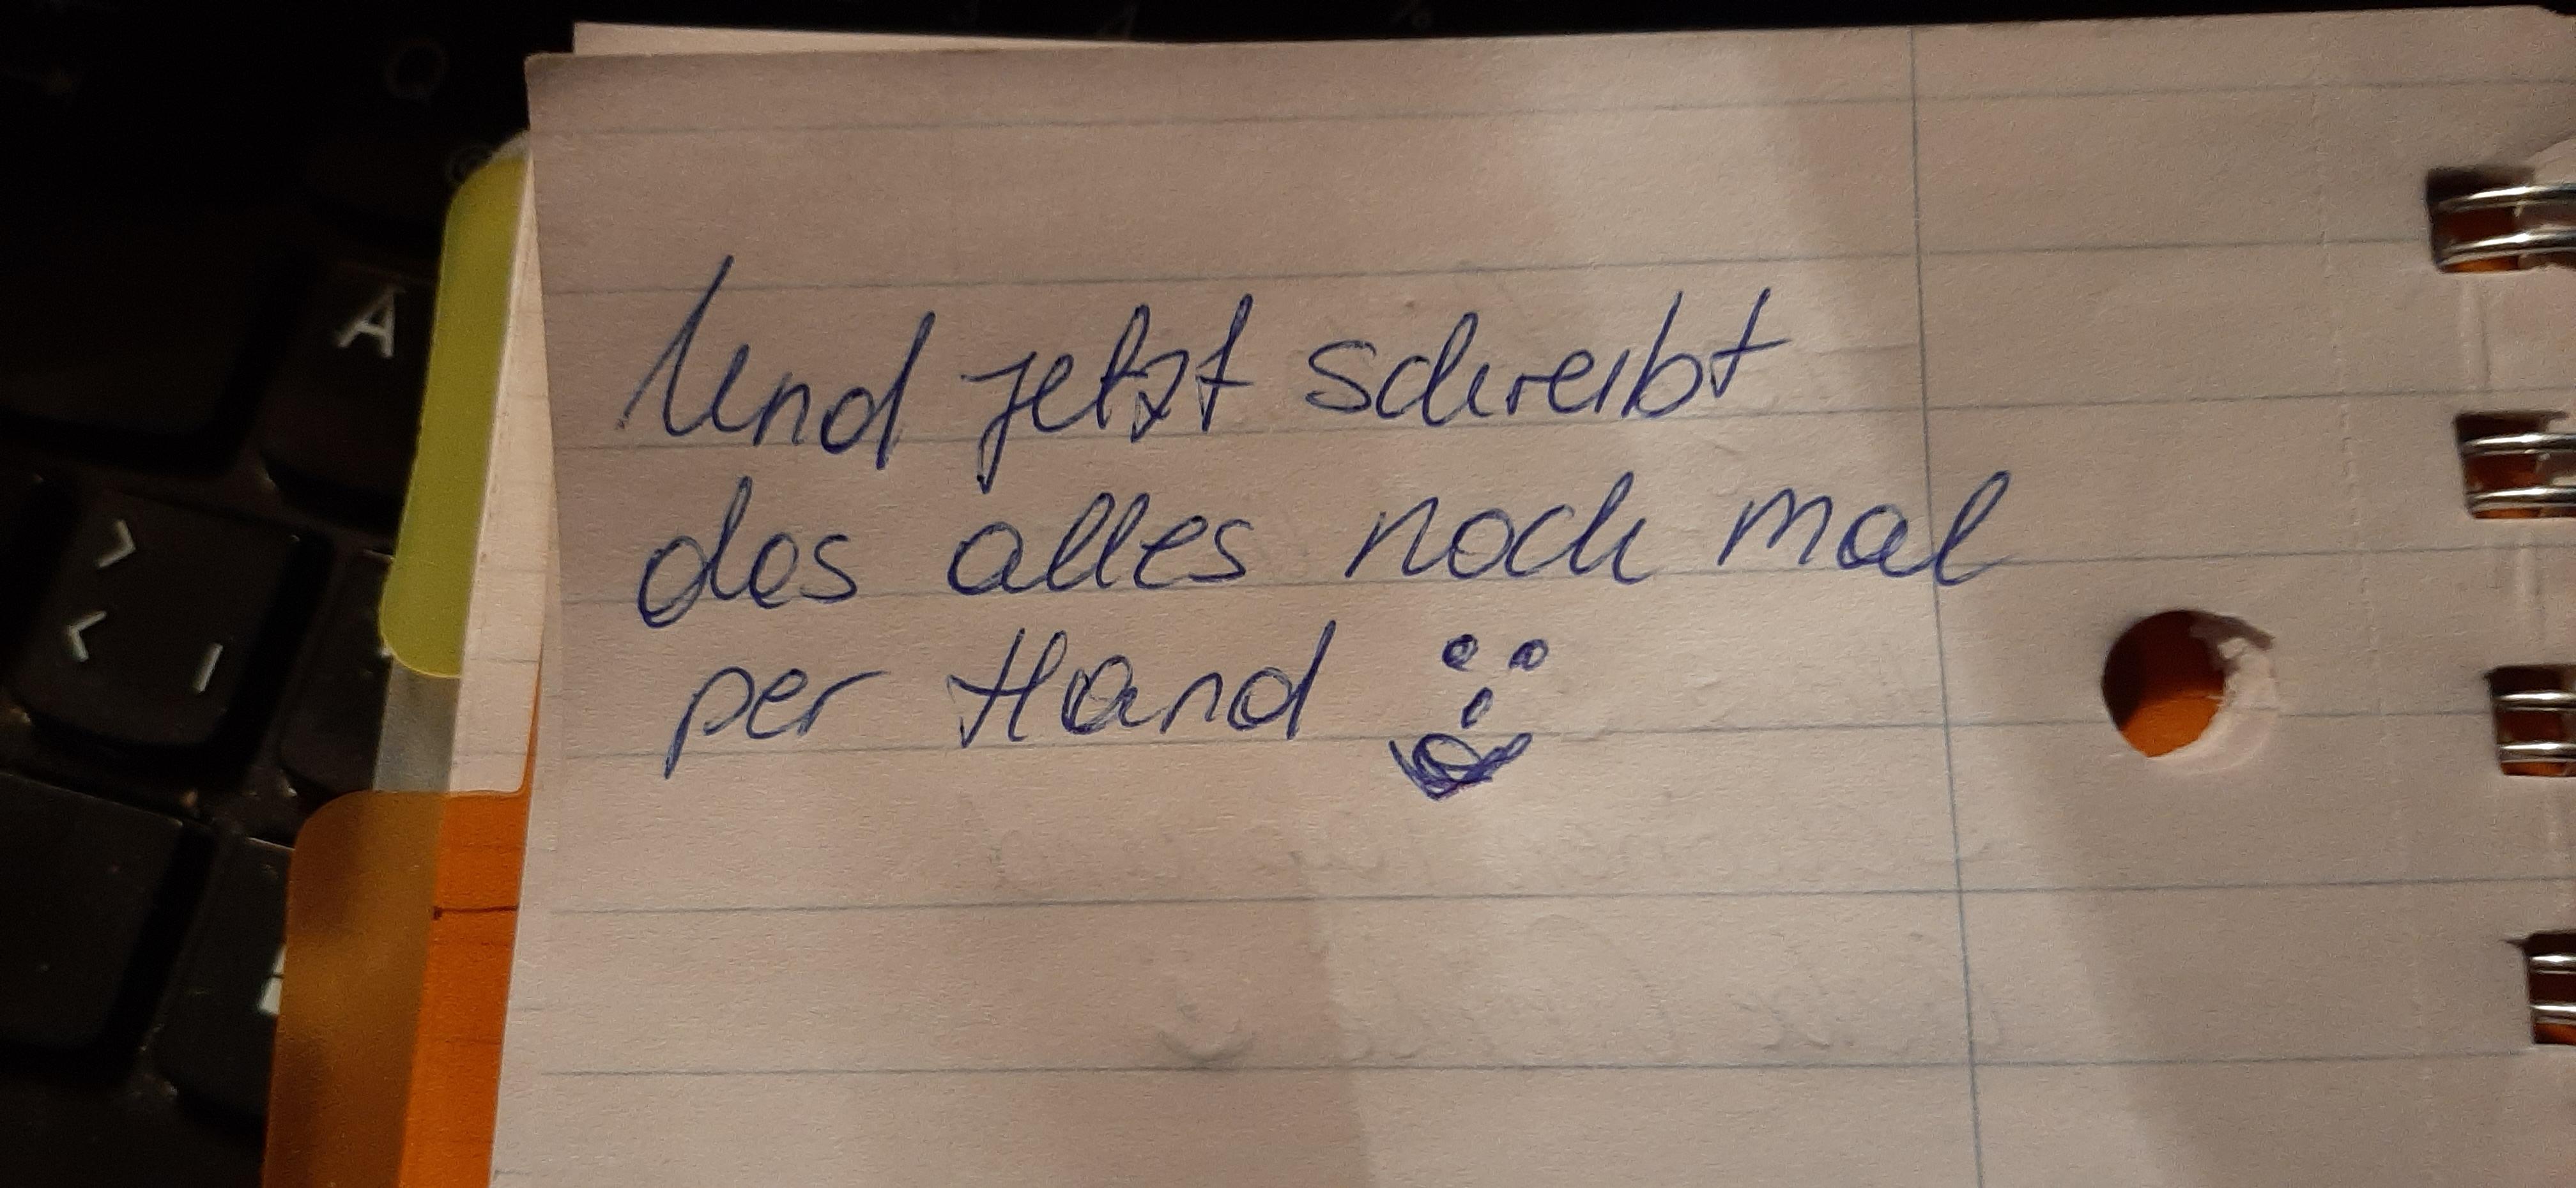 Und jetzt schreibt
des alles noch mal
per Hand
A
>
<
|